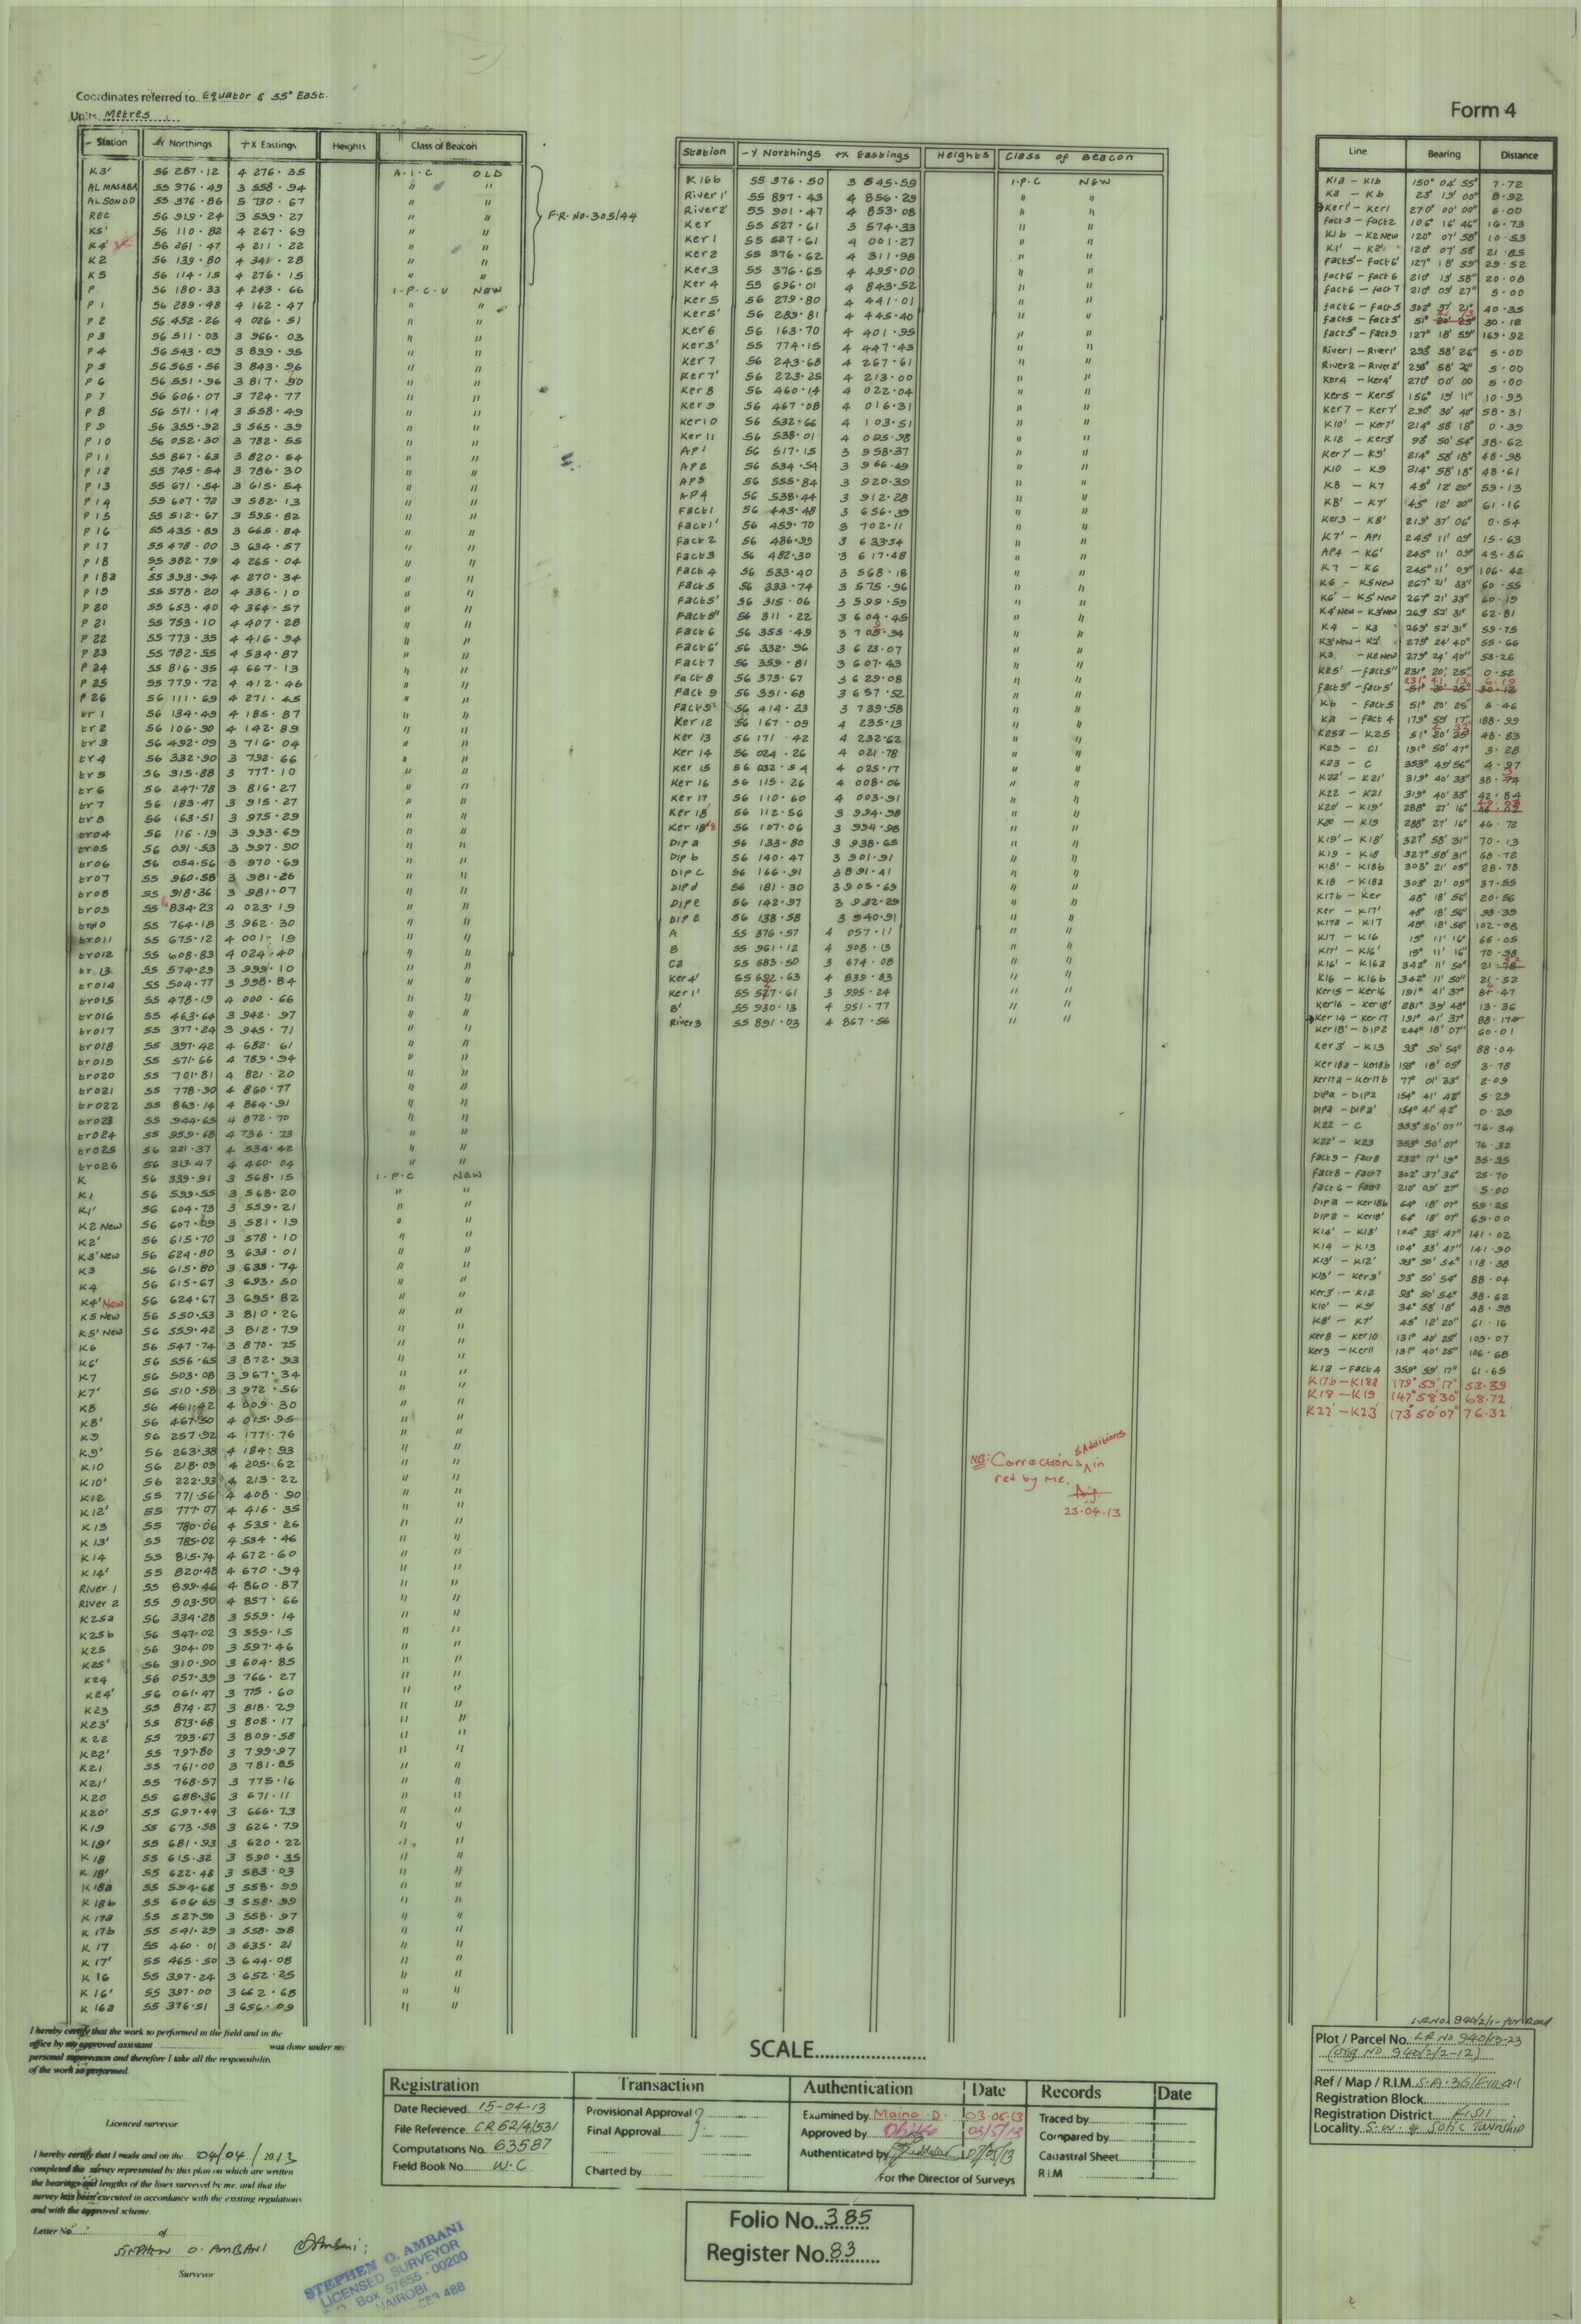 Coordinates referred to Equator & 35° East.
Units Metres
Form 4
Station -Y Northings +X Eastings Heights Class of Beacon
K3' 56 287.12 4 276.35 A.I.C OLD
AL MASABA 55 376.49 3 558.94 " "
AL SONDO 55 376.86 5 730.67 " "
REC 56 919.24 3 559.27 " "
K5' 56 110.82 4 267.69 " "
K4' 56 261.47 4 211.22 " "
K2 56 139.80 4 341.28 " "
K5 56 114.15 4 276.15 " "
F.R. No. 305/44
P 56 180.33 4 243.66 I.P.C.U NEW
P 1 56 289.48 4 162.47 " "
P 2 56 452.26 4 026.51 " "
P 3 56 511.03 3 966.03 " "
P 4 56 543.09 3 899.95 " "
P 5 56 565.56 3 843.96 " "
P 6 56 551.96 3 817.90 " "
P 7 56 606.07 3 724.77 " "
P 8 56 571.14 3 558.49 " "
P 9 56 355.92 3 565.39 " "
P 10 56 052.30 3 782.55 " "
P 11 55 867.63 3 820.64 " "
P 12 55 745.54 3 786.30 " "
P 13 55 671.54 3 615.54 " "
P 14 55 607.72 3 582.13 " "
P 15 55 512.67 3 595.82 " "
P 16 55 435.89 3 665.84 " "
P 17 55 478.00 3 634.57 " "
P 18 55 382.79 4 265.04 " "
P 18a 55 393.94 4 270.34 " "
P 19 55 578.20 4 336.10 " "
P 20 55 653.40 4 364.57 " "
P 21 55 753.10 4 407.28 " "
P 22 55 773.35 4 416.94 " "
P 23 55 782.55 4 534.87 " "
P 24 55 816.35 4 667.13 " "
P 25 55 779.72 4 412.46 " "
P 26 56 111.69 4 271.45 " "
tr 1 56 134.49 4 185.87 " "
tr 2 56 106.90 4 142.89 " "
tr 3 56 492.09 3 716.04 " "
tr 4 56 332.90 3 792.66 " "
tr 5 56 315.88 3 777.10 " "
tr 6 56 247.78 3 816.27 " "
tr 7 56 183.47 3 915.27 " "
tr 8 56 163.51 3 975.29 " "
tro4 56 116.19 3 993.69 " "
tro5 56 091.53 3 997.90 " "
tro6 56 054.56 3 970.69 " "
tro7 55 960.58 3 981.26 " "
tro8 55 918.36 3 981.07 " "
tro9 55 834.23 4 023.19 " "
tro10 55 764.18 3 962.30 " "
tro11 55 675.12 4 001.19 " "
tro12 55 608.83 4 024.40 " "
tr.13 55 574.29 3 999.10 " "
tro14 55 504.77 3 998.84 " "
tro15 55 478.19 4 000.66 " "
tro16 55 463.64 3 942.97 " "
tro17 55 377.24 3 945.71 " "
tro18 55 397.42 4 682.61 " "
tro19 55 571.66 4 789.94 " "
tro20 55 701.81 4 821.20 " "
tro21 55 778.90 4 860.77 " "
tro22 55 863.14 4 864.91 " "
tro23 55 944.65 4 872.70 " "
tro24 55 959.68 4 736.73 " "
tro25 56 221.37 4 534.42 " "
tro26 56 313.47 4 460.04 " "
K 56 339.91 3 568.15 I.P.C NEW
K1 56 599.55 3 568.20 " "
K1' 56 604.73 3 559.21 " "
K2 New 56 607.09 3 581.19 " "
K2' 56 615.70 3 578.10 " "
K3' New 56 624.80 3 633.01 " "
K3 56 615.80 3 633.74 " "
K4 56 615.67 3 693.50 " "
K4' New 56 624.67 3 695.82 " "
K5 New 56 550.53 3 810.26 " "
K5' New 56 559.42 3 812.79 " "
K6 56 547.74 3 870.75 " "
K6' 56 556.65 3 872.93 " "
K7 56 503.08 3 967.34 " "
K7' 56 510.58 3 972.56 " "
K8 56 461.42 4 009.30 " "
K8' 56 467.50 4 015.95 " "
K9 56 257.92 4 177.76 " "
K9' 56 263.38 4 184.93 " "
K10 56 218.09 4 205.62 " "
K10' 56 222.93 4 213.22 " "
K12 55 771.56 4 408.90 " "
K12' 55 777.07 4 416.35 " "
K13 55 780.06 4 535.26 " "
K13' 55 785.02 4 534.46 " "
K14 55 815.74 4 672.60 " "
K14' 55 820.48 4 670.94 " "
River 1 55 899.46 4 860.87 " "
River 2 55 903.50 4 857.66 " "
K25a 56 334.28 3 559.14 " "
K25b 56 347.02 3 559.15 " "
K25 56 304.00 3 597.46 " "
K25' 56 310.90 3 604.85 " "
K24 56 057.39 3 766.27 " "
K24' 56 061.47 3 775.60 " "
K23 55 874.27 3 818.29 " "
K23' 55 873.68 3 808.17 " "
K22 55 793.67 3 809.58 " "
K22' 55 797.80 3 799.97 " "
K21 55 761.00 3 781.85 " "
K21' 55 768.57 3 775.16 " "
K20 55 688.36 3 671.11 " "
K20' 55 697.44 3 666.73 " "
K19 55 673.58 3 626.79 " "
K19' 55 681.93 3 620.22 " "
K18 55 615.32 3 590.35 " "
K18' 55 622.48 3 583.03 " "
K18a 55 594.68 3 558.99 " "
K18b 55 606.65 3 558.99 " "
K17a 55 527.90 3 558.97 " "
K17b 55 541.29 3 558.98 " "
K17 55 460.01 3 635.21 " "
K17' 55 465.50 3 644.08 " "
K16 55 397.24 3 652.25 " "
K16' 55 397.00 3 662.68 " "
K16a 55 376.51 3 656.09 " "
Station -Y Northings +X Eastings Heights Class of Beacon
K16b 55 376.50 3 645.59 I.P.C NEW
River1' 55 897.43 4 856.29 " "
River2' 55 901.47 4 853.08 " "
Ker 55 527.61 3 574.33 " "
Ker1 55 527.61 4 001.27 " "
Ker2 55 376.62 4 311.98 " "
Ker3 55 376.65 4 495.00 " "
Ker4 55 696.01 4 843.52 " "
Ker5 56 279.80 4 441.01 " "
Ker5' 56 289.81 4 445.40 " "
Ker6 56 163.70 4 401.95 " "
Ker3' 55 774.15 4 447.43 " "
Ker7 56 243.68 4 267.61 " "
Ker7' 56 223.25 4 213.00 " "
Ker8 56 460.14 4 022.04 " "
Ker9 56 467.08 4 016.31 " "
Ker10 56 532.66 4 103.51 " "
Ker11 56 538.01 4 095.98 " "
AP1 56 517.15 3 958.37 " "
AP2 56 534.54 3 966.49 " "
AP3 56 555.84 3 920.39 " "
AP4 56 538.44 3 912.28 " "
Fact1 56 443.48 3 656.39 " "
Fact1' 56 459.70 3 702.11 " "
Fact2 56 486.99 3 633.54 " "
Fact3 56 482.30 3 617.48 " "
Fact4 56 533.40 3 568.18 " "
Fact5 56 333.74 3 575.96 " "
Fact5' 56 315.06 3 599.59 " "
Fact5" 56 311.22 3 604.45 " "
Fact6 56 355.49 3 .94 " "
Fact6' 56 332.96 3 623.07 " "
Fact7 56 359.81 3 607.43 " "
Fact8 56 373.67 3 629.08 " "
Fact9 56 351.68 3 657.52 " "
Fact9' 56 414.23 3 739.58 " "
Ker12 56 167.09 4 235.13 " "
Ker13 56 171.42 4 232.62 " "
Ker14 56 024.26 4 021.78 " "
Ker15 56 032.54 4 025.17 " "
Ker16 56 115.26 4 008.06 " "
Ker17 56 110.60 4 003.91 " "
Ker18 56 112.56 3 994.98 " "
Ker18'a 56 107.06 3 994.98 " "
Dip a 56 133.80 3 938.65 " "
Dip b 56 140.47 3 901.91 " "
DIP c 56 166.91 3 891.41 " "
DIP d 56 181.30 3 905.69 " "
DIP e 56 142.97 3 932.29 " "
DIP 2 56 138.58 3 940.91 " "
A 55 376.57 4 057.11 " "
B 55 961.12 4 908.13 " "
C2 55 683.50 3 674.08 " "
Ker4' 55 692.63 4 839.83 " "
Ker1' 55 527.61 3 995.24 " "
B' 55 930.13 4 951.77 " "
River3 55 891.03 4 867.56 " "
NB: Corrections & Additions in
red by me.
23.04.13
Line Bearing Distance
K1a - K1b 150° 04' 55" 7.72
Ka - Kb 23° 19' 00" 8.92
Ker1' - Ker1 270° 00' 00" 6.00
Fact3 - Fact2 106° 16' 46" 16.73
K1b - K2New 120° 07' 58" 10.53
K1' - K2' 120° 07' 58" 21.85
Fact5' - Fact6' 127° 18' 59" 29.52
Fact6' - Fact6 210° 13' 58" 20.08
Fact6 - Fact7 210° 09' 27" 5.00
Fact6 - Fact5 302° 37' 21" 40.35
Fact5 - Fact5' 51° 30.12
Fact5" - Fact9 127° 18' 59" 169.92
River1 - River1' 293° 58' 26" 5.00
River2 - River2' 293° 58' 26" 5.00
Ker4 - Ker4' 270° 00' 00 5.00
Ker5 - Ker5' 156° 19' 11" 10.93
Ker7 - Ker7' 290° 30' 40" 58.31
K10' - Ker7' 214° 58' 18" 0.39
K12 - Ker3' 93° 50' 54" 38.62
Ker7' - K9' 214° 58' 18" 48.98
K10 - K9 214° 58' 18" 48.61
K8 - K7 45° 12' 20" 59.13
K8' - K7' 45° 12' 20" 61.16
Ker9 - K8' 219° 37' 06" 0.54
K7' - AP1 245° 11' 09" 15.63
AP4 - K6' 245° 11' 09" 43.36
K7 - K6 245° 11' 09" 106.42
K6 - K5New 267° 21' 33" 60.55
K6' - K5'New 267° 21' 33" 60.19
K4'New - K3'New 269° 52' 31" 62.81
K4 - K3 269° 52' 31" 59.75
K3'New - K2' 279° 24' 40" 55.66
K3 - K2New 279° 24' 40" 53.26
K25' - Fact5" 231° 20' 25" 0.52
Fact5" - Fact5' 231° 41' 13" 6.19
Kb - Fact5 51° 20' 25" 5.46
Ka - Fact4 179° 59' 17" 188.99
K25a - K25 51° 48.83
K23 - C1 191° 50' 47" 3.28
K23 - C 353° 49' 56" 4.97
K22' - K21' 319° 40' 33" 38.
K22 - K21 319° 40' 33" 42.84
K20' - K19' 288° 27' 16" 49.03
K20 - K19 288° 27' 16" 46.72
K19' - K18' 327° 58' 31" 70.13
K19 - K18 327° 58' 31" 68.72
K18' - K18b 303° 21' 05" 28.78
K18 - K18a 303° 21' 05" 37.55
K17b - Ker 48° 18' 56" 20.56
Ker - K17' 48° 18' 56" 93.39
K17a - K17 48° 18' 56" 102.08
K17 - K16 15° 11' 16" 65.05
K17' - K16' 15° 11' 16" 70.98
K16' - K16a 342° 11' 50" 21.52
K16 - K16b 342° 11' 50" 21.52
Ker15 - Ker16 191° 41' 37" 84.47
Ker16 - Ker18' 281° 39' 48" 13.36
Ker14 - Ker17 191° 41' 37" 88.17
Ker18' - DIP2 244° 18' 07" 60.01
Ker3' - K13 93° 50' 54" 88.04
Ker18a - Ker18b 193° 18' 05" 3.78
Ker17a - Ker17b 77° 01' 33" 2.09
DIPa - DIP2 154° 41' 42" 5.29
DIPa - DIP2' 154° 41' 42" 0.29
K22 - C 353° 50' 07" 76.34
K22' - K23 353° 50' 07" 76.32
Fact9 - Fact8 232° 17' 19" 35.95
Fact8 - Fact7 302° 37' 36" 25.70
Fact6 - Fact7 210° 09' 27" 5.00
Dip2 - Ker18b 64° 18' 07" 59.25
DIP2 - Ker18' 64° 18' 07" 69.00
K14' - K13' 104° 33' 47" 141.02
K14 - K13 104° 33' 47" 141.90
K13' - K12' 93° 50' 54" 118.38
K13' - Ker3' 93° 50' 54" 88.04
Ker3' - K12 93° 50' 54" 38.62
K10' - K9' 34° 58' 18" 48.98
K8' - K7' 45° 12' 20" 61.16
Ker8 - Ker10 131° 40' 25" 109.07
Ker9 - Ker11 131° 40' 25" 106.68
K1a - Fact4 359° 59' 17" 61.65
K17b - K18a 179° 59' 17" 53.39
K18 - K19 147° 58' 30" 68.72
K22' - K23' 173° 50' 07" 76.32
I hereby certify that the work so performed in the field and in the
office by my approved assistant was done under my
personal supervision and therefore I take all the responsibility
of the work so performed.
Licenced surveyor
I hereby certify that I made and on the 04/04/2013
completed the survey represented by this plan on which are written
the bearings and lengths of the lines surveyed by me, and that the
survey has been executed in accordance with the existing regulations
and with the approved scheme
Letter No. of
STEPHEN O. AMBANI
Surveyor
STEPHEN O. AMBANI
LICENSED SURVEYOR
P.O. Box 57655 - 00200
NAIROBI
SCALE
Registration
Date Recieved 15-04-13
File Reference CR 62/4/531
Computations No. 63587
Field Book No. W.C
Transaction
Provisional Approval
Final Approval
Charted by
Authentication Date
Examined by Maina .D. 03.05.13
Approved by 03/5/13
Authenticated by 07/05/13
For the Director of Surveys
Records Date
Traced by
Compared by
Cadastral Sheet
R.I.M
Folio No. 385
Register No. 83
L.R.No. 940/2/1 - for Road
Plot / Parcel No. L.R No 940/13-23
(Orig No 940/2/2-12)
Ref / Map / R.I.M. S.A.36/E.III.a.1
Registration Block
Registration District KISII
Locality S.W. of Sotic Township